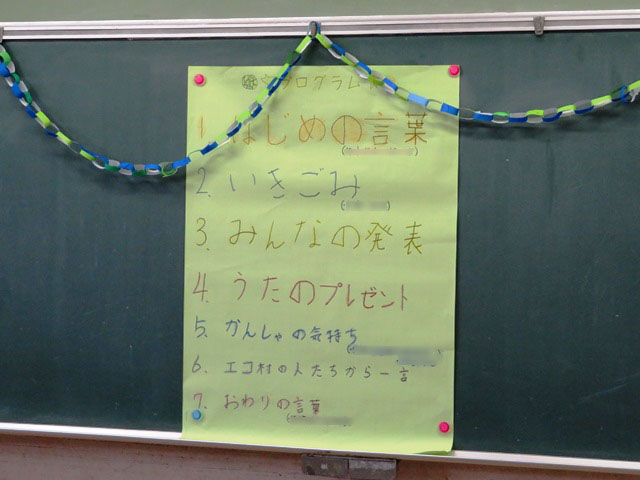 プログラム
1. はじめの言葉
2. いきごみ
3. みんなの発表
4. うたのプレゼント
5. かんしゃの気持ち
6. エコ村の人たちから一言
7. おわりの言葉